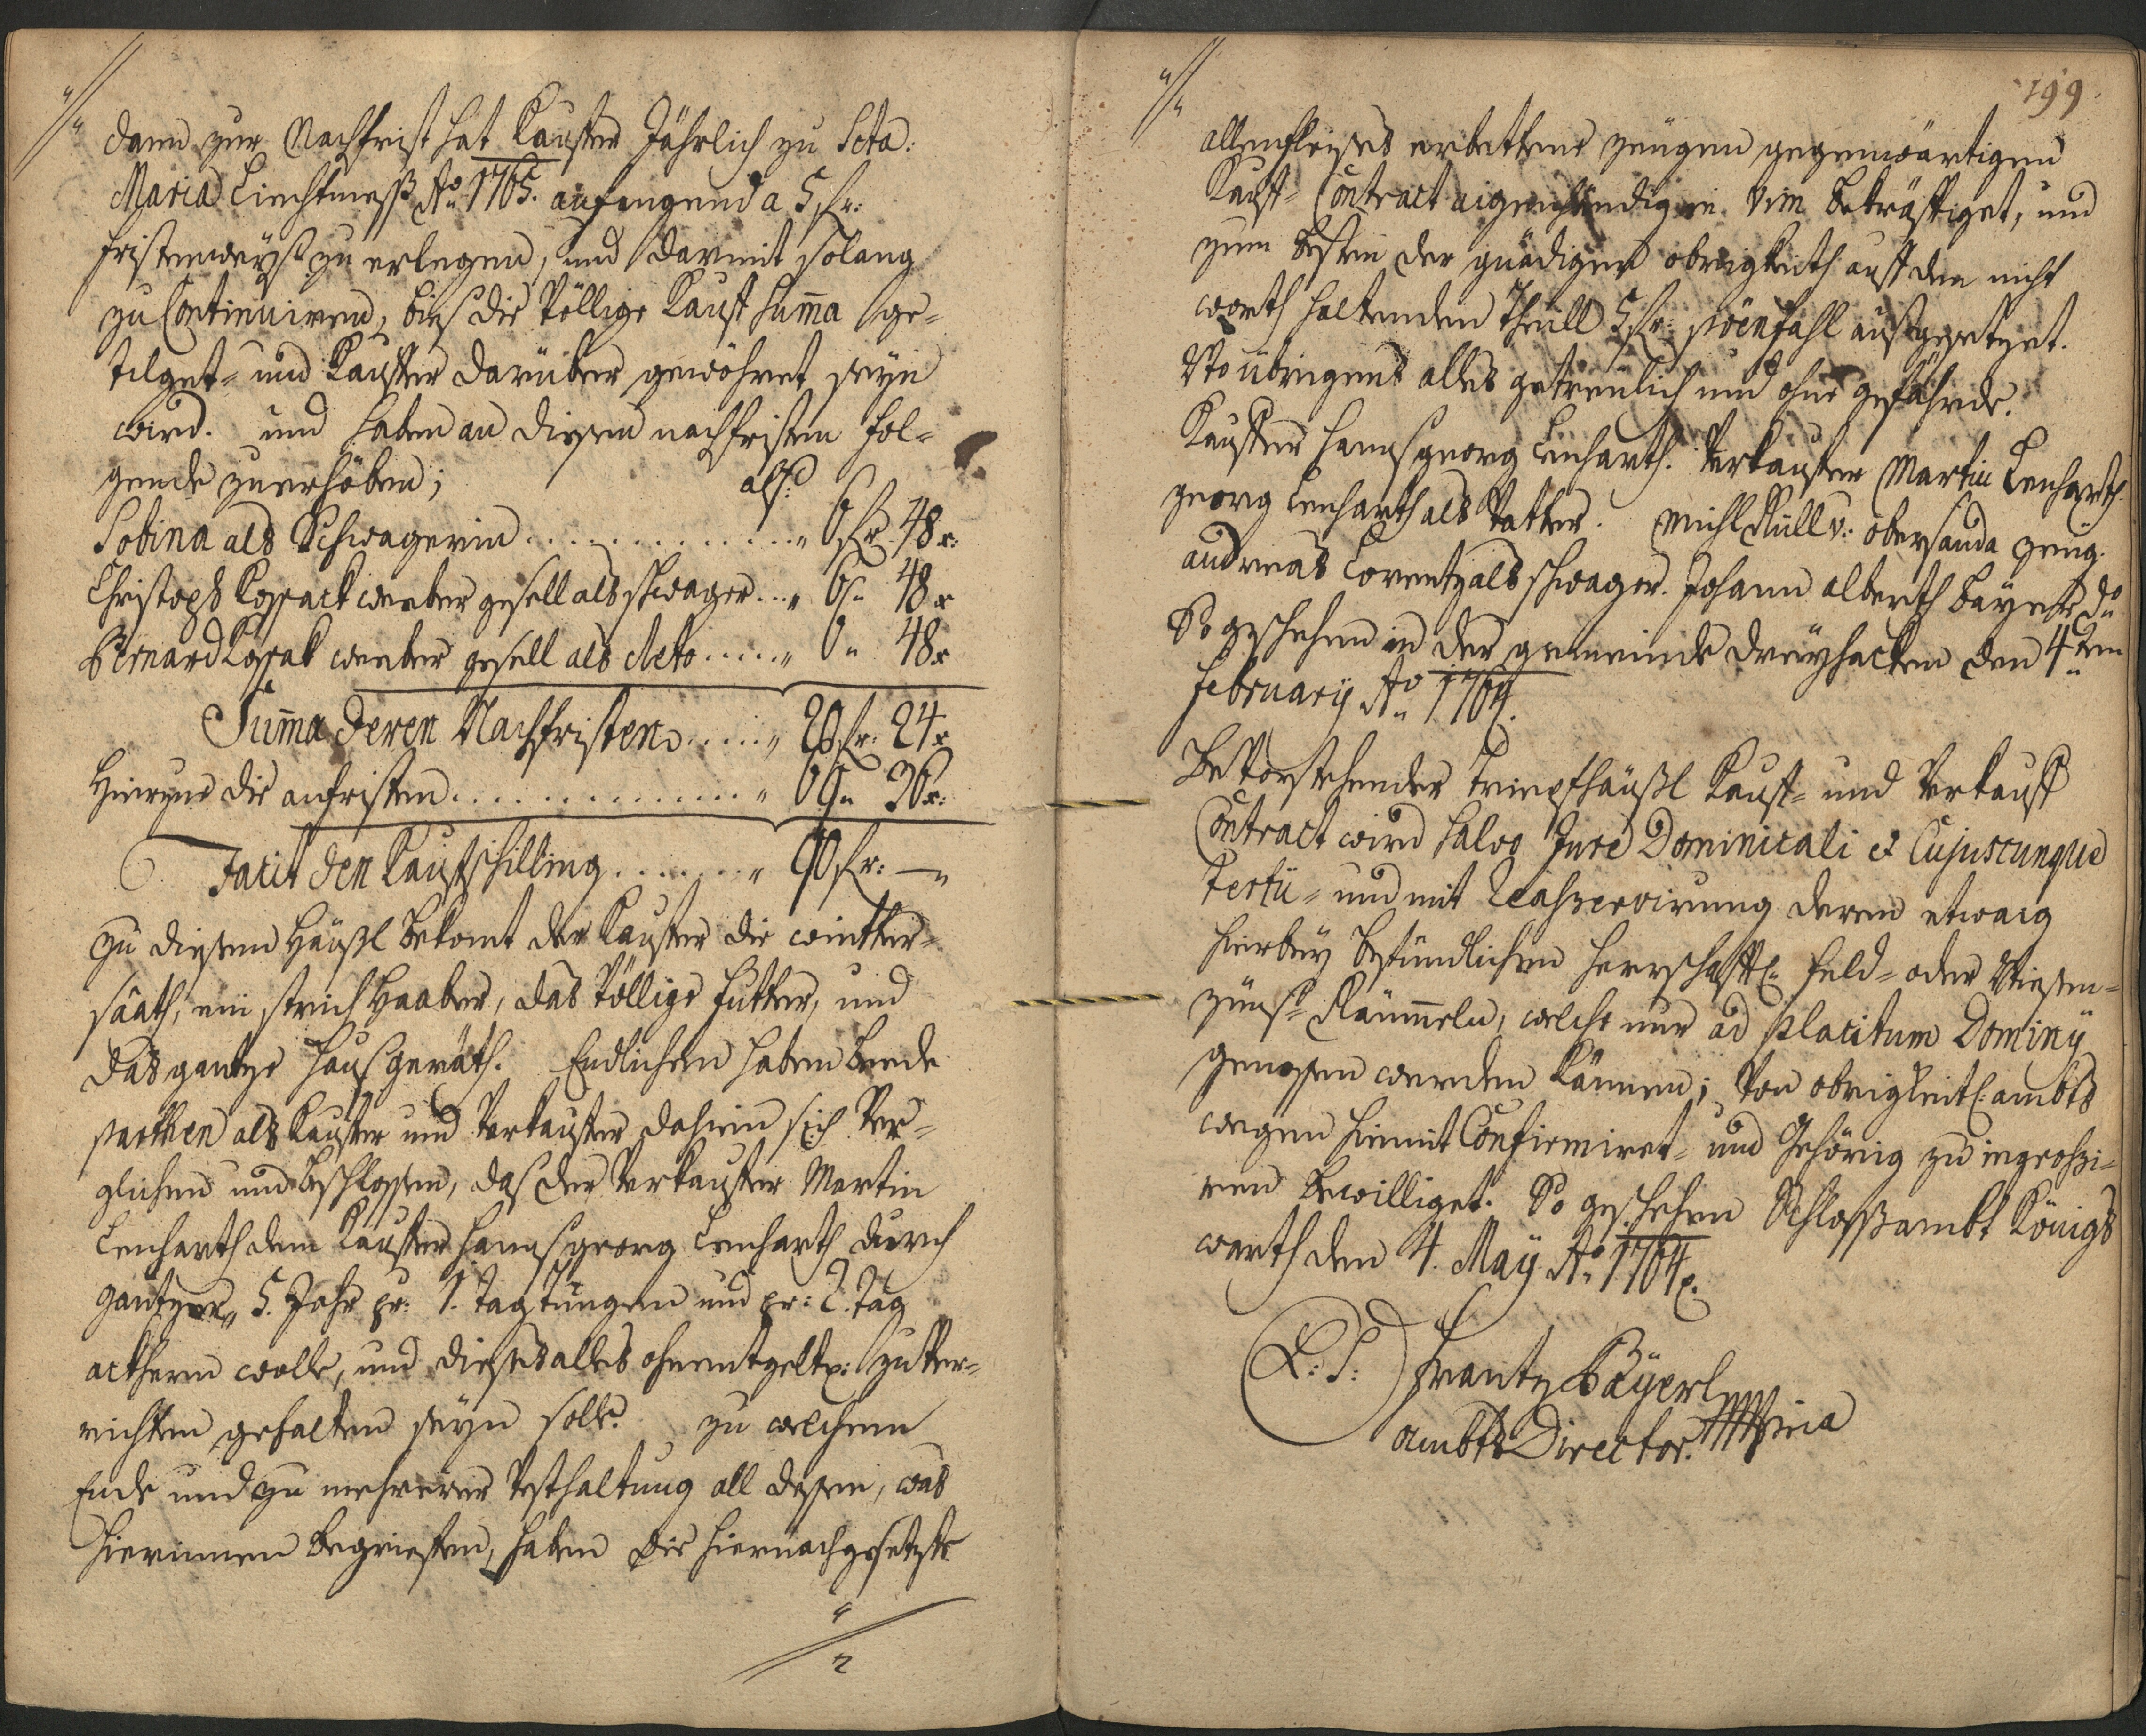 dann zur Nachfrist hat Kauffer Jährlich zu Scta:
Maria Liechtmeß Ao 1765. anfangend a 5 fr:
fristenweyß zu erlegen, und darmit solang
zu Continuiren, bies die völlige Kauff Suma ge-
tilget- und Kauffer darüber gewöhret seyn
wird. und haben an diesen nachfristen fol-
gende zu erhöben; alß:
Sobina als Schwagerin .............. „ 6 fr. 48 x:
Christoph Kossack weeber gesell als schwager ... „ 6 „ 48 x
Bernard Kossak weeber gesell als detto ..... „ 6 „ 48 x
Suma deren Nachfristen ..... „ 20 fr: 24 x
Hierzue die anfristen ............... „ 69 „ 36 x:
Facit den Kaufschilling ....... „ 90 fr: — „
zu diesem Häußl bekomt der Kauffer die wintter-
säath, ein strich Haaber, das völlige Futter, und
das gantze Haus geräth. Endlichen haben beede
parthen als Kauffer und Verkauffer dahien sich ver-
glichen und beschlossen, daß der Verkauffer Martin
Lenharth dem Kauffer Hanns georg Lenharth durch
gantzer „ 5. Jahr pr: 1. tag tüngen und pr: 2. tag
ackhern wolle, und dieses alles ohnentgeltl: zu ver-
richten gehalten seyn solle. zu welchem
Ende und zu mehrerer Vesthaltung all dessen, was
hierinnen begrieffen, haben die hiernachgesetzte
199.
allenfleises erbettene zeugen gegenwärtigen
Kauff- Contract aigenhändig in vim bekräfftiget, und
zum besten der gnädigen obrigkeith auff den nicht
worth haltenden theill 5 fr: pöenfahl ausgesetzet.
Uto übrigens alles getreulich und ohne gefährde.
Kauffer Hanns georg Lenharth. Verkauffer Martin Lenharth
georg Lenharth als Vatter. Michl Rüll v: obersanda zeug.
andreas Lorentz als schwager. Johann alberth Bayer do
So geschehen in der gemeinde dreyhacken den 4ten
February Ao 1764.
Bevorstehender Häußl Kauff- und Verkauff
Contract wird salvo Jure Dominicali et Cujuscunque
tertii- und mit Reaßervirung deren etwaig
hierbey befündlichen herrschafftl: feld- oder Wiesen-
zünß Räumeln, welche nur ad placitum Dominy
genossen werden Können; von obrigkeitl: ambts
wegen hiemit Confirmiret- und Gehörig zu ingroßi-
ren bewilliget. So geschehen Schlossambt Königs
warth den 4. May Ao 1764.
(L: S:) Frantz Bayerl
ambts Director.